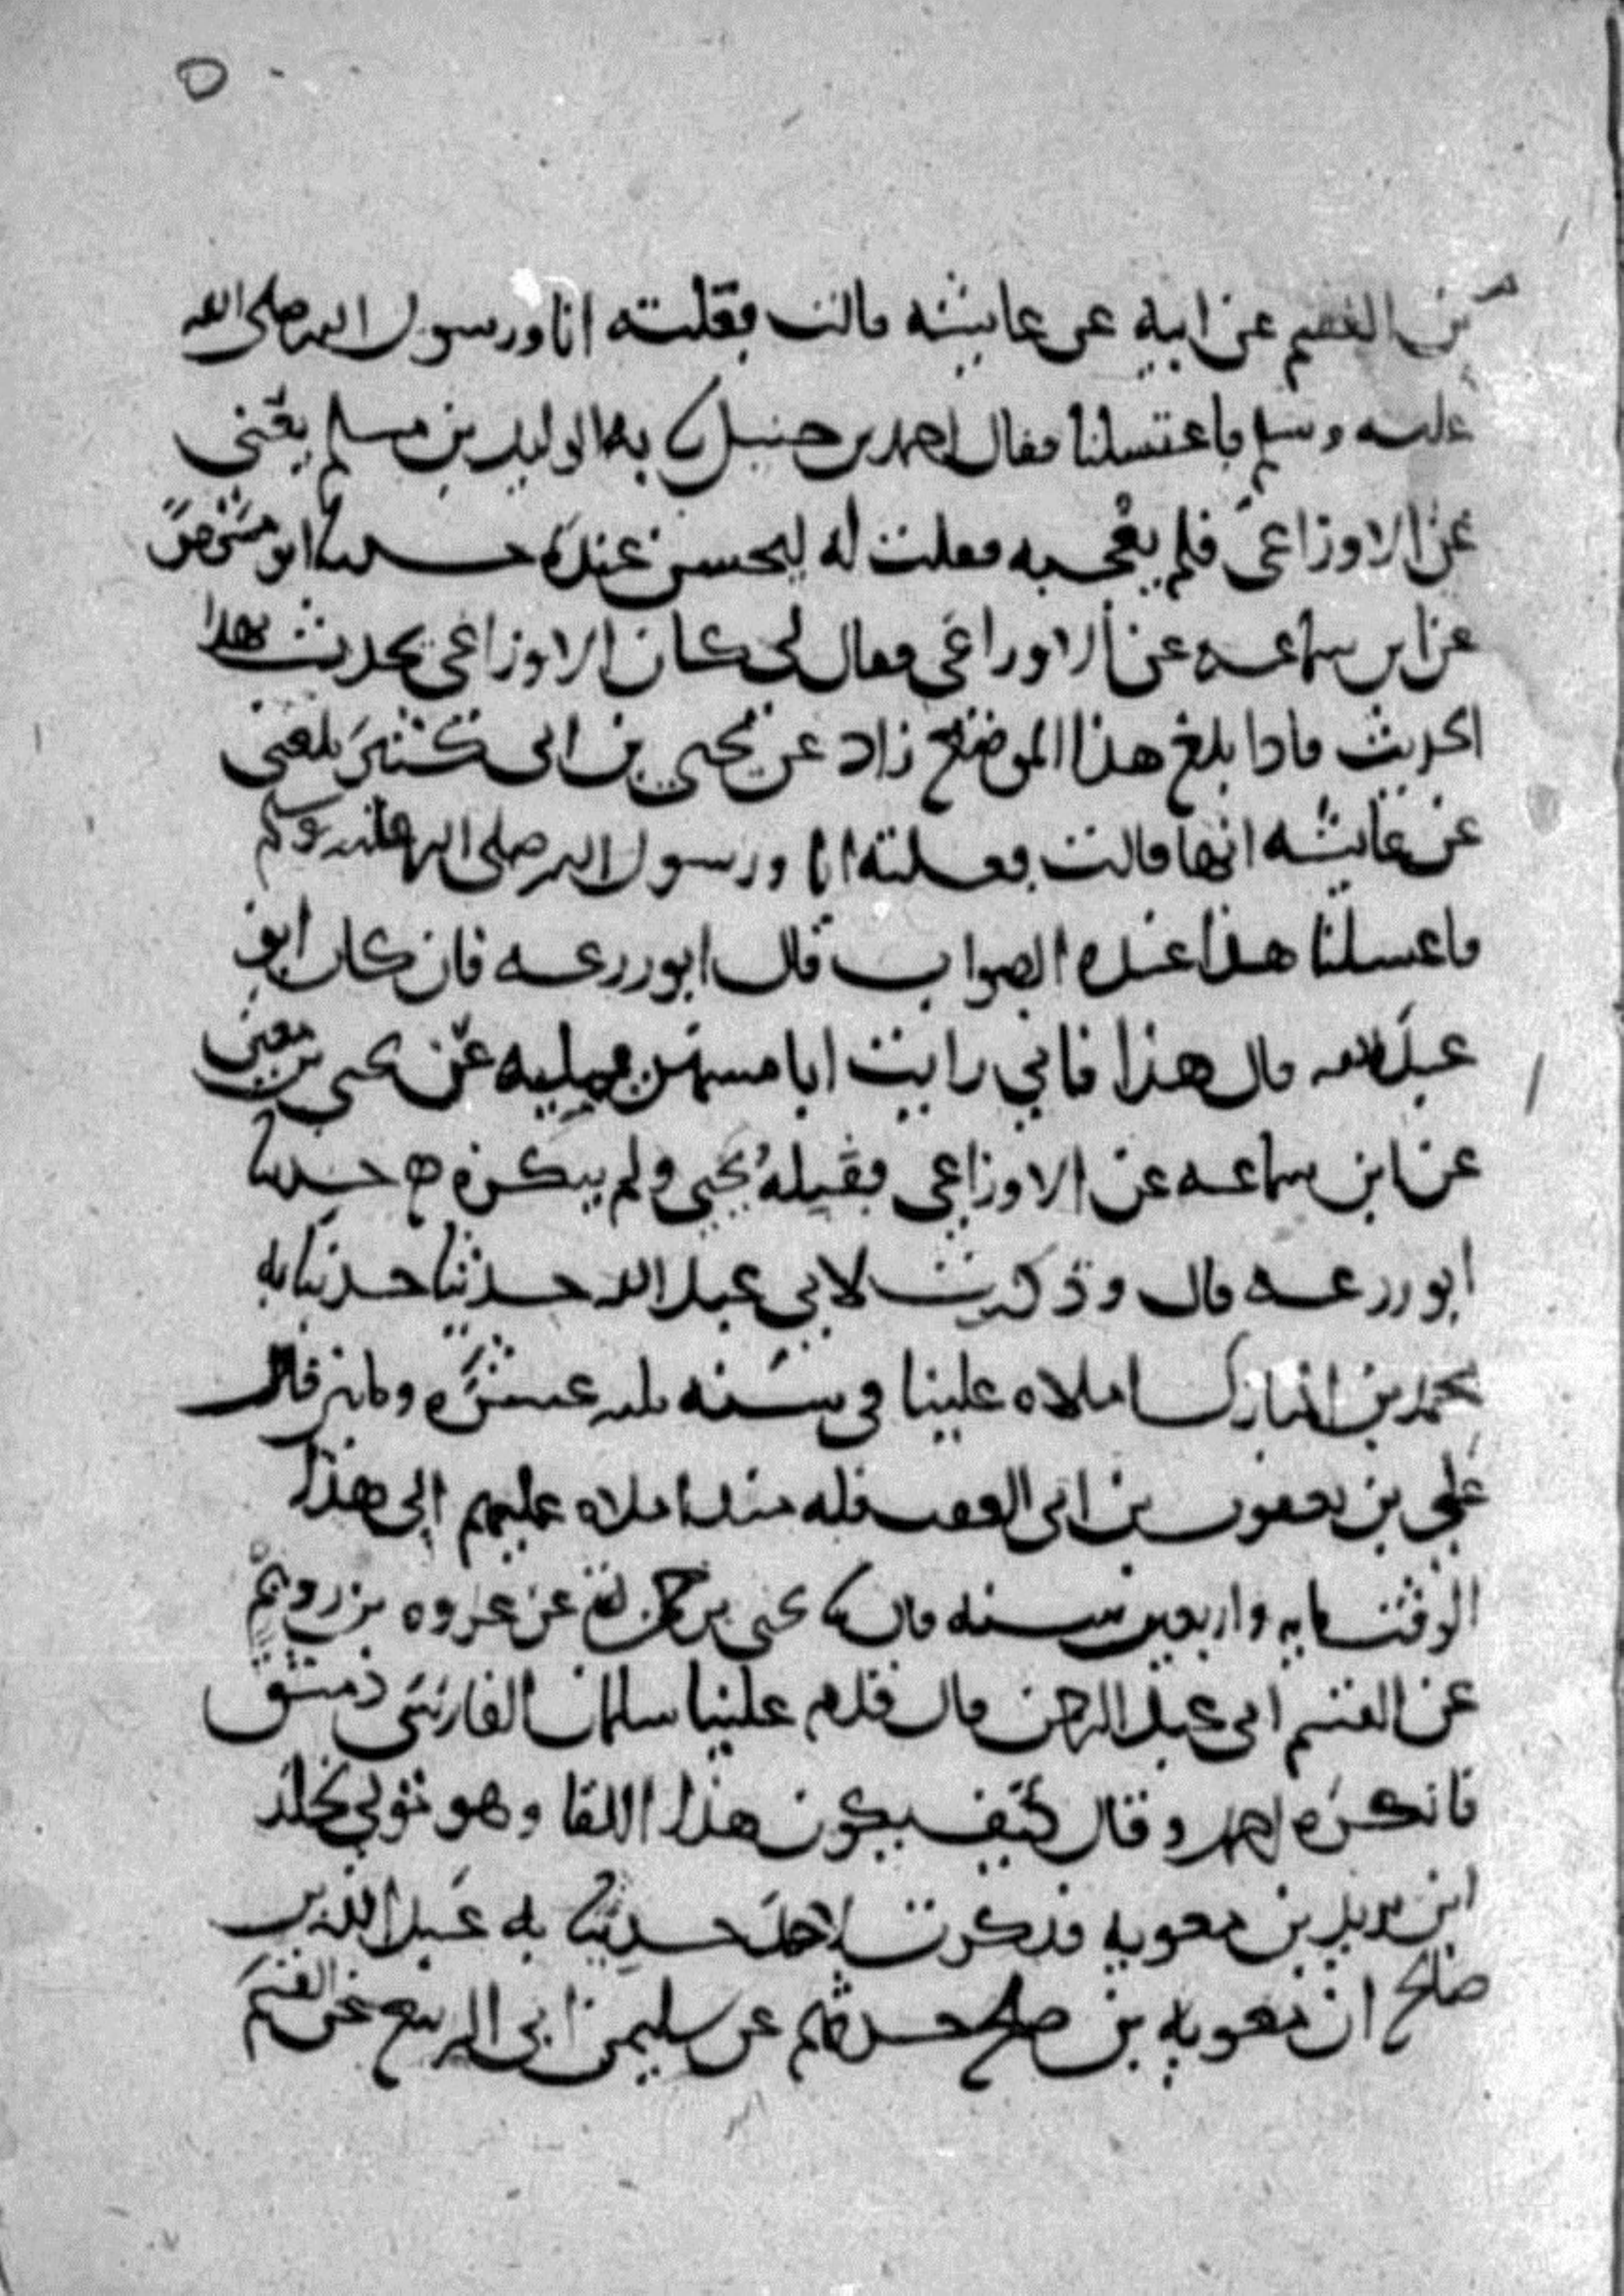 بن القسم عن ابيه عن عايشه قالت فعلته انا ورسول الله صلى الله
عليه وسلم فاغتسلنا فقال احمد بن حنبل نا به الوليد بن مسلم يعني
عن الاوزاعي فلم يعجبه فقلت له ليحسن عنده حدثنا ابو مسهر
عن ابن سماعه عن الاوزاعي فقال لي كان الاوزاعي يحدث بهذا
الحديث فاذا بلغ هذا الموضع زاد عن يحيى بن ابي كثير بلغني
عن عايشه انها قالت فعلته انا ورسول الله صلى الله عليه وسلم
فاغتسلنا هذا عنده الصواب قال ابو زرعه فان كان ابو
عبد الله قال هذا فاني رايت ابا مسهر يمليه على يحيى بن معين
عن ابن سماعه عن الاوزاعي فقبله يحيى ولم ينكره ه حدثنا
ابو زرعه قال وذكرت لابي عبد الله حديثا حدثنا به
محمد بن المبارك املاه علينا في سنه ثلث عشره ومايتين قال
علي بن يعقوب بن ابي العقب فله منذ املاه عليهم الى هذا
الوقت مايه واربعين سنه قال نا يحيى بن حمزه عن عروه بن رويم
عن القسم ابي عبد الرحمن قال قدم علينا سلمان الفارسي دمشق
فانكره احمد وقال كيف يكون هذا اللقا وهو مولى لخلد
ابن يزيد بن معويه فذكرت لاحمد حديثا به عبد الله بن
صالح ان معويه بن صلح حدثهم عن سليمن ابي الربيع عن القسم